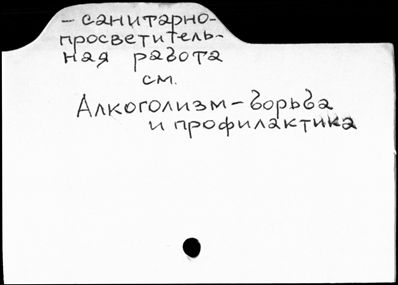 – санитарно-
просветитель-
ная работа
см.
Алкоголизм – борьба
и профилактика